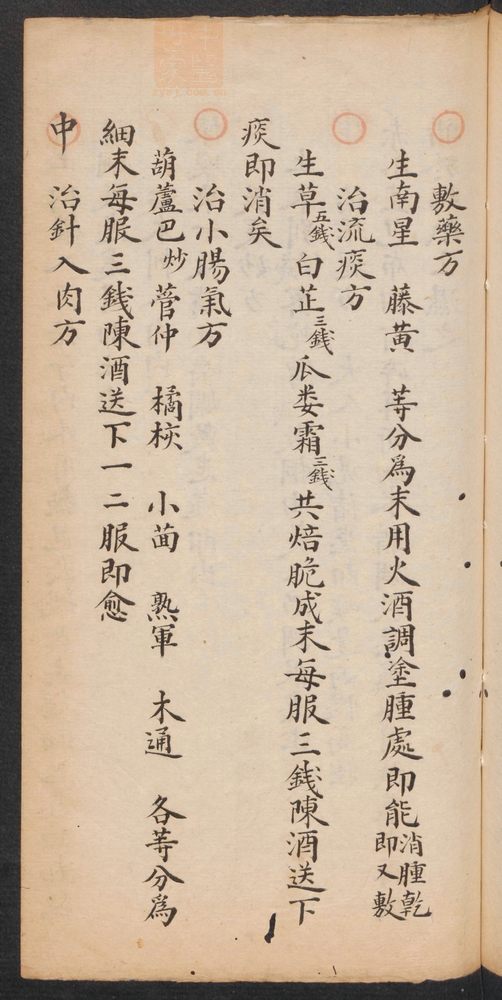 敷藥方
生南星 藤黃 等分爲末用火酒調塗腫處即能消腫乾即又敷
治流痰方
生草五錢白芷三錢瓜娄霜三錢共焙脆成末每服三錢陳酒送下
痰即消矣
治小腸氣方
葫蘆巴炒 菅仲 橘核 小茴 熟軍 木通 各等分爲
細末每服三錢陳酒送下一二服即愈
中 治針入肉方